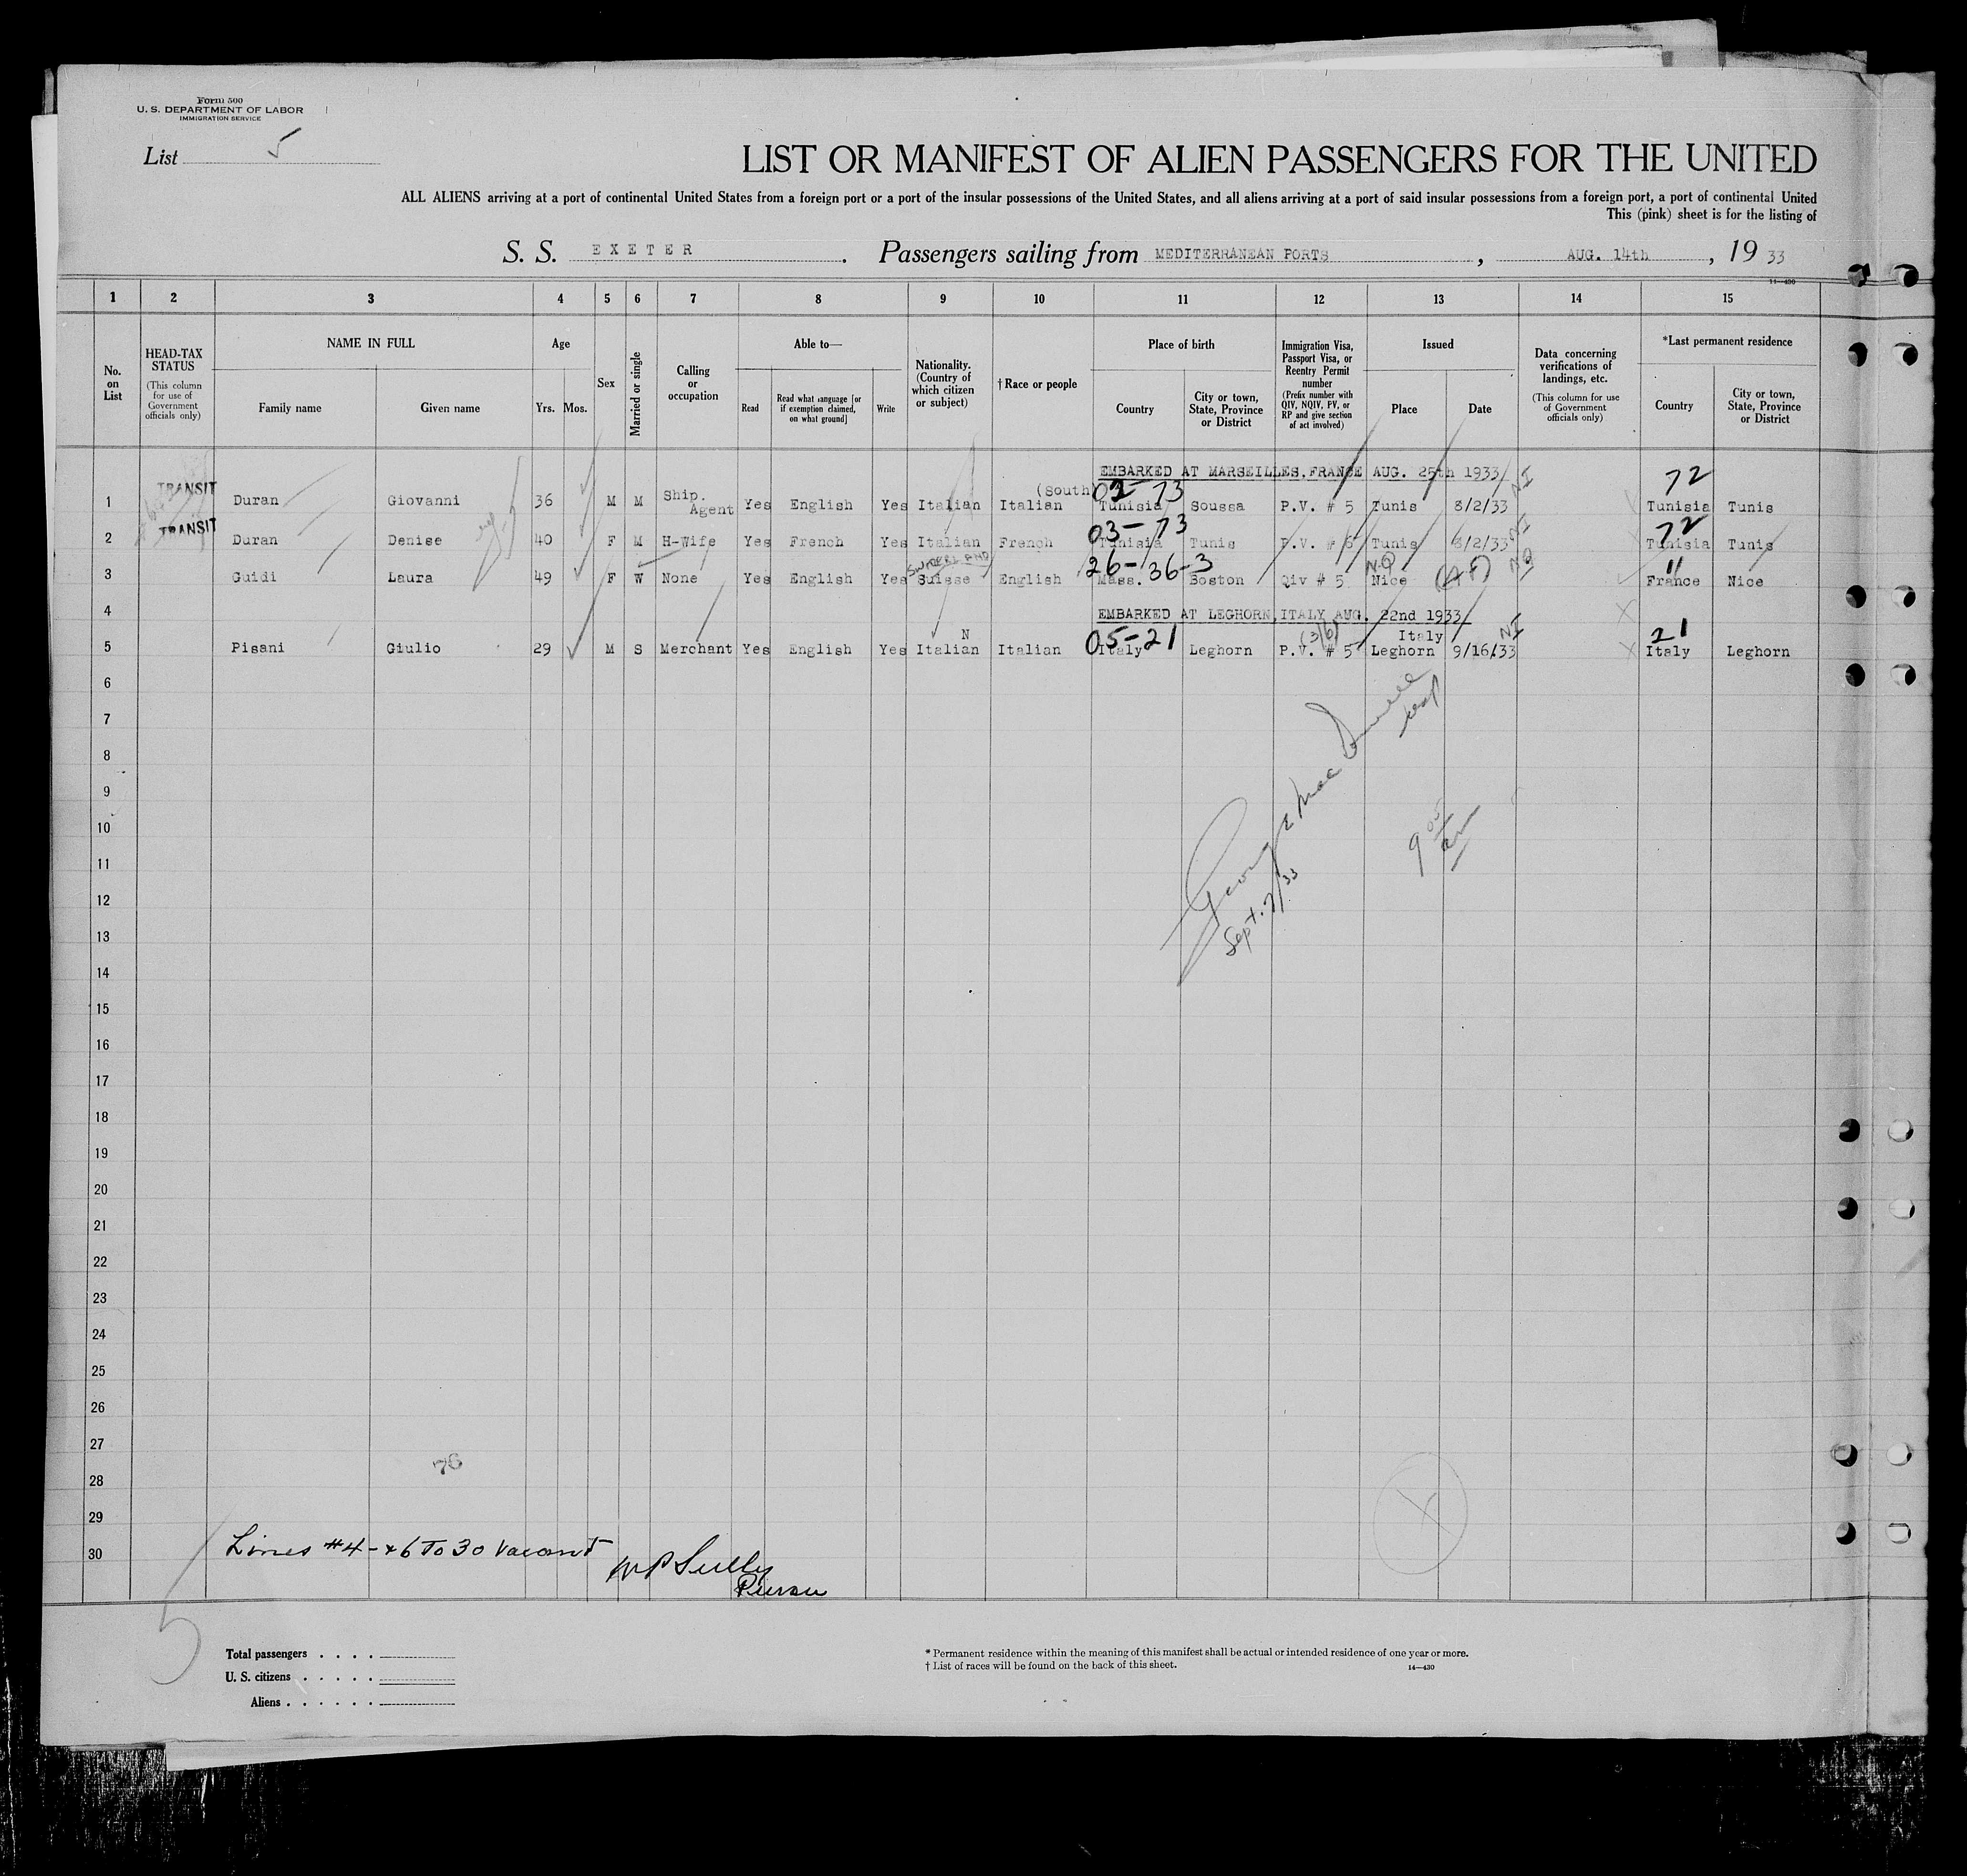 Form 500
U. S. DEPARTMENT OF LABOR
IMMIGRATION SERVICE
List 5
LIST OR MANIFEST OF ALIEN PASSENGERS FOR THE UNITED
ALL ALIENS arriving at a port of continental United States from a foreign port or a port of the insular possessions of the United States, and all aliens arriving at a port of said insular possessions from a foreign port, a port of continental United
This (pink) sheet is for the listing of
S. S. EXETER . Passengers sailing from MEDITERRANEAN PORTS , AUG. 14th , 19 33
1 2 3 4 5 6 7 8 9 10 11 12 13 14 15
No. on List
HEAD-TAX STATUS (This column for use of Government officials only)
NAME IN FULL
Family name Given name
Age
Yrs. Mos.
Sex
Married or single
Calling or occupation
Able to—
Read
Read what language [or if exemption claimed, on what ground]
Write
Nationality. (Country of which citizen or subject)
†Race or people
Place of birth
Country
City or town, State, Province or District
Immigration Visa, Passport Visa, or Reentry Permit number (Prefix number with QIV, NQIV, PV, or RP and give section of act involved)
Issued
Place Date
Data concerning verifications of landings, etc. (This column for use of Government officials only)
*Last permanent residence
Country
City or town, State, Province or District
EMBARKED AT MARSEILLES, FRANCE AUG. 25th 1933 NI 72
1 TRANSIT Duran Giovanni 36 M M Ship. Agent Yes English Yes Italian Italian (South) Tunisia Soussa P.V. # 5 Tunis 8/2/33 Tunisia Tunis
03-73 NI 72
2 TRANSIT Duran Denise 40 F M H-Wife Yes French Yes Italian French Tunisia Tunis P.V. # 5 Tunis 8/2/33 Tunisia Tunis
26-36-3 NQ 11
3 Guidi Laura 49 F W None Yes English Yes Suisse English Mass. Boston Qiv # 5 Nice France Nice
4 EMBARKED AT LEGHORN, ITALY AUG. 22nd 1933
N 05-21 (3/6) Italy NI 21
5 Pisani Giulio 29 M S Merchant Yes English Yes Italian Italian Italy Leghorn P.V. # 5 Leghorn 9/16/33 Italy Leghorn
6
7
8
9
10
11
12
13
14
15
16
17
18
19
20
21
22
23
24
25
26
27
28
29
30
Sept. 7/33
9 05 am
76
Lines #4 - & 6 To 30 Vacant
W P Sully
Purser
5
Total passengers . . . .
U. S. citizens . . . . .
Aliens . . . . . .
* Permanent residence within the meaning of this manifest shall be actual or intended residence of one year or more.
† List of races will be found on the back of this sheet.
14—430